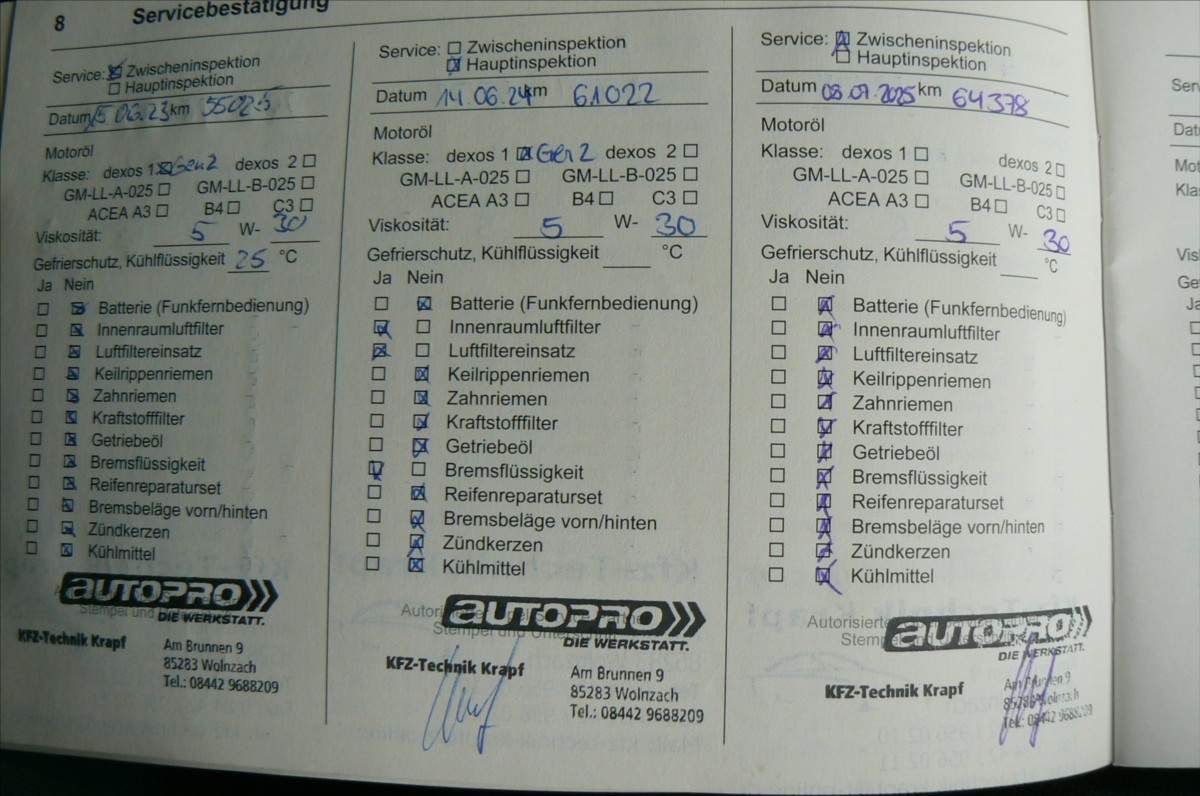 8 Servicebestätigung
Service: Zwischeninspektion
Hauptinspektion
Datum 15.06.23 km 55025
Motoröl
Klasse: dexos 1 Gen 2 dexos 2
GM-LL-A-025 GM-LL-B-025
ACEA A3 B4 C3
Viskosität: 5 W- 30
Gefrierschutz, Kühlflüssigkeit 25 °C
Ja Nein
Batterie (Funkfernbedienung)
Innenraumluftfilter
Luftfiltereinsatz
Keilrippenriemen
Zahnriemen
Kraftstofffilter
Getriebeöl
Bremsflüssigkeit
Reifenreparaturset
Bremsbeläge vorn/hinten
Zündkerzen
Kühlmittel
AUTOPRO
Stempel und
DIE WERKSTATT.
KFZ-Technik Krapf
Am Brunnen 9
85283 Wolnzach
Tel.: 08442 9688209
Service: Zwischeninspektion
Hauptinspektion
Datum 14.06.24 km 61022
Motoröl
Klasse: dexos 1 Gen 2 dexos 2
GM-LL-A-025 GM-LL-B-025
ACEA A3 B4 C3
Viskosität: 5 W- 30
Gefrierschutz, Kühlflüssigkeit °C
Ja Nein
Batterie (Funkfernbedienung)
Innenraumluftfilter
Luftfiltereinsatz
Keilrippenriemen
Zahnriemen
Kraftstofffilter
Getriebeöl
Bremsflüssigkeit
Reifenreparaturset
Bremsbeläge vorn/hinten
Zündkerzen
Kühlmittel
AUTOPRO
Stempel und
DIE WERKSTATT.
KFZ-Technik Krapf
Am Brunnen 9
85283 Wolnzach
Tel.: 08442 9688209
Service: Zwischeninspektion
Hauptinspektion
Datum 08.07.2025 km 64378
Motoröl
Klasse: dexos 1 dexos 2
GM-LL-A-025 GM-LL-B-025
ACEA A3 B4 C3
Viskosität: 5 W- 30
Gefrierschutz, Kühlflüssigkeit °C
Ja Nein
Batterie (Funkfernbedienung)
Innenraumluftfilter
Luftfiltereinsatz
Keilrippenriemen
Zahnriemen
Kraftstofffilter
Getriebeöl
Bremsflüssigkeit
Reifenreparaturset
Bremsbeläge vorn/hinten
Zündkerzen
Kühlmittel
AUTOPRO
DIE WERKSTATT.
KFZ-Technik Krapf
Am Brunnen 9
85283 Wolnzach
Tel.: 08442 9688209